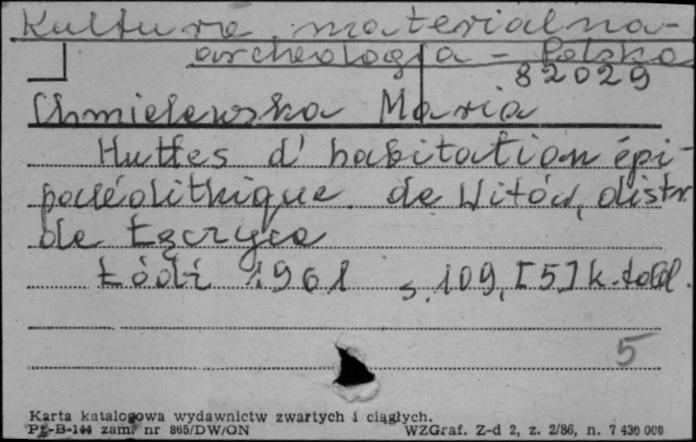 Kultura materialna-
archeologia - Polska
82029
Chmielewska Maria
Huttes d'habitation épi-
paléolithique de Witów, distr.
de Łęczyca
Łódź 1961 s. 109, [5] k. tabl.
5
Karta katalogowa wydawnictw zwartych i ciągłych.
Pz-B-144 zam. nr 865/DW/ON WZGraf. Z-d 2, z. 2/86, n. 7 430 000